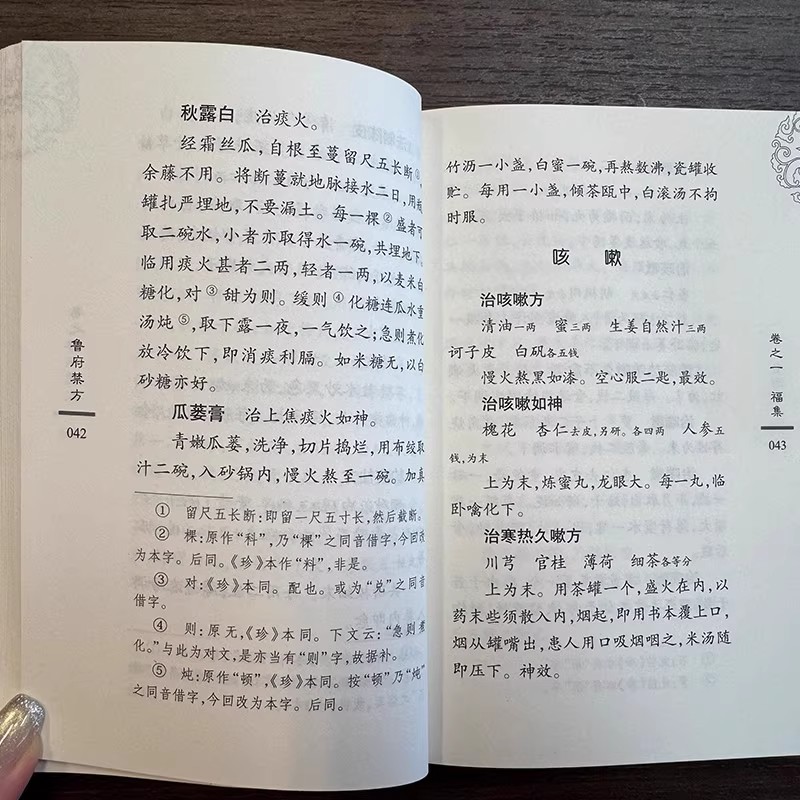 秋露白 治痰火。
经霜丝瓜，自根至蔓留尺五长断①，
余藤不用。将断蔓就地脉接水二日，用
罐扎严埋地，不要漏土。每一棵②盛者可
取二碗水，小者亦取得水一碗，共埋地下。
临用痰火甚者二两，轻者一两，以麦米白
糖化，对③甜为则。缓则④化糖连瓜水重
汤炖⑤，取下露一夜，一气饮之；急则煮化
放冷饮下，即消痰利膈。如米糖无，以白
砂糖亦好。
瓜蒌膏 治上焦痰火如神。
青嫩瓜蒌，洗净，切片捣烂，用布绞取
汁二碗，入砂锅内，慢火熬至一碗。加真
① 留尺五长断：即留一尺五寸长，然后截断。
② 棵：原作“科”，乃“棵”之同音借字，今回改
为本字。后同。《珍》本作“料”，非是。
③ 对：《珍》本同。配也。或为“兑”之同音
借字。
④ 则：原无，《珍》本同。下文云：“急则煮
化。”与此为对文，是亦当有“则”字，故据补。
⑤ 炖：原作“顿”，《珍》本同。按“顿”乃“炖”
之同音借字，今回改为本字。后同。
鲁府禁方
042
竹沥一小盏，白蜜一碗，再熬数沸，瓷罐收
贮。每用一小盏，倾茶瓯中，白滚汤不拘
时服。
咳嗽
治咳嗽方
清油一两 蜜三两 生姜自然汁三两
诃子皮 白矾各五钱
慢火熬黑如漆。空心服二匙，最效。
治咳嗽如神
槐花 杏仁去皮，另研。各四两 人参五
钱，为末
上为末，炼蜜丸，龙眼大。每一丸，临
卧噙化下。
治寒热久嗽方
川芎 官桂 薄荷 细茶各等分
上为末。用茶罐一个，盛火在内，以
药末些须散入内，烟起，即用书本覆上口，
烟从罐嘴出，患人用口吸烟咽之，米汤随
即压下。神效。
卷之一 福集
043